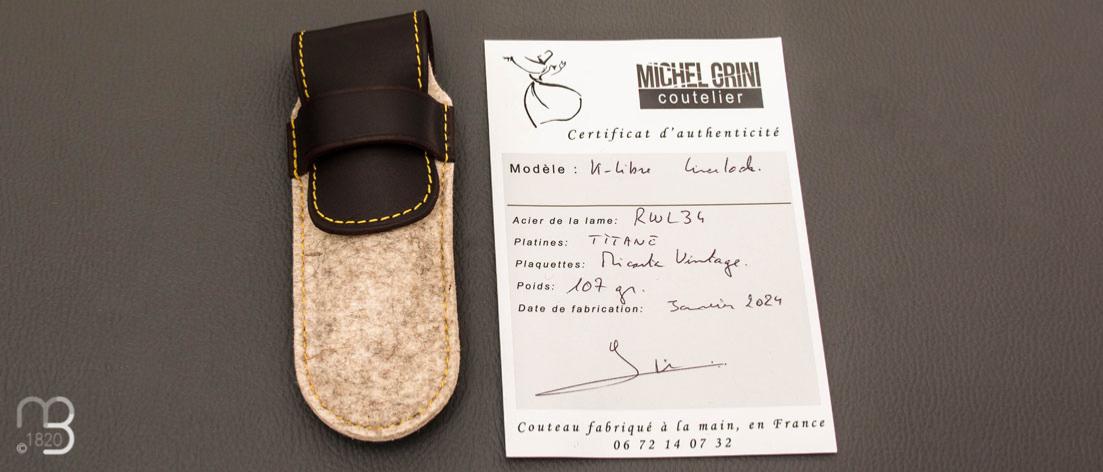 MICHEL GRINI
coutelier
Certificat d'authenticité
Modèle : K-libre Linerlock.
Acier de la lame: RWL34
Platines: TITANE
Plaquettes: Micarta Vintage.
Poids: 107 gr.
Date de fabrication: Janvier 2024
Couteau fabriqué à la main, en France
06 72 14 07 32
© 1820